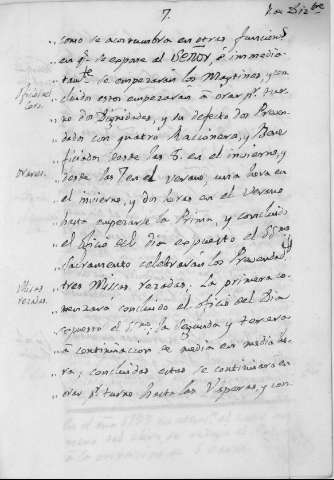 7.
1 de Dizbre
„ como se acostumbra en otras funciones
„ en qe. se expone el Señor, é inmedia-
„ tamte. se empezarán los Maytines, y con-
„ cluidos estos empezarán á orar pr. tur-
„ no dos Dignidades, y su defecto dos Preven-
„ dados con quatro Racioneros, y Bene-
„ ficiados desde las 6. en el invierno, y
Oracion.
„ desde las 7 en el verano, una hora en
„ el invierno, y dos horas en el verano
„ hasta empezarse la Prima, y concluido
„ el oficio del dia expuesto el SSmo
„ Sacramento celebrarán los Prevendados
Misas
rezadas.
„ tres Missas rezadas; la primera co-
„ menzara concluido el oficio del Dia
„ expuesto el Smo, la segunda y tercera
„ á continuacion de media en media ho-
„ ra, concluidas estas se continuará en
„ orar pr. turno hasta las Visperas, y con-